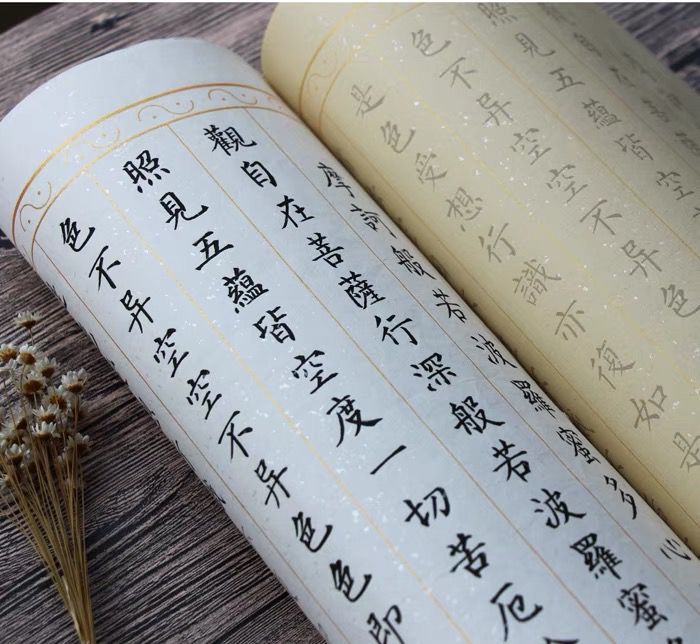 照見五蘊皆空
色不异空空不异色
是色受想行識亦復如是
摩訶般若波羅蜜多心
觀自在菩薩行深般若波羅蜜
照見五蘊皆空度一切苦厄
色不异空空不异色色即